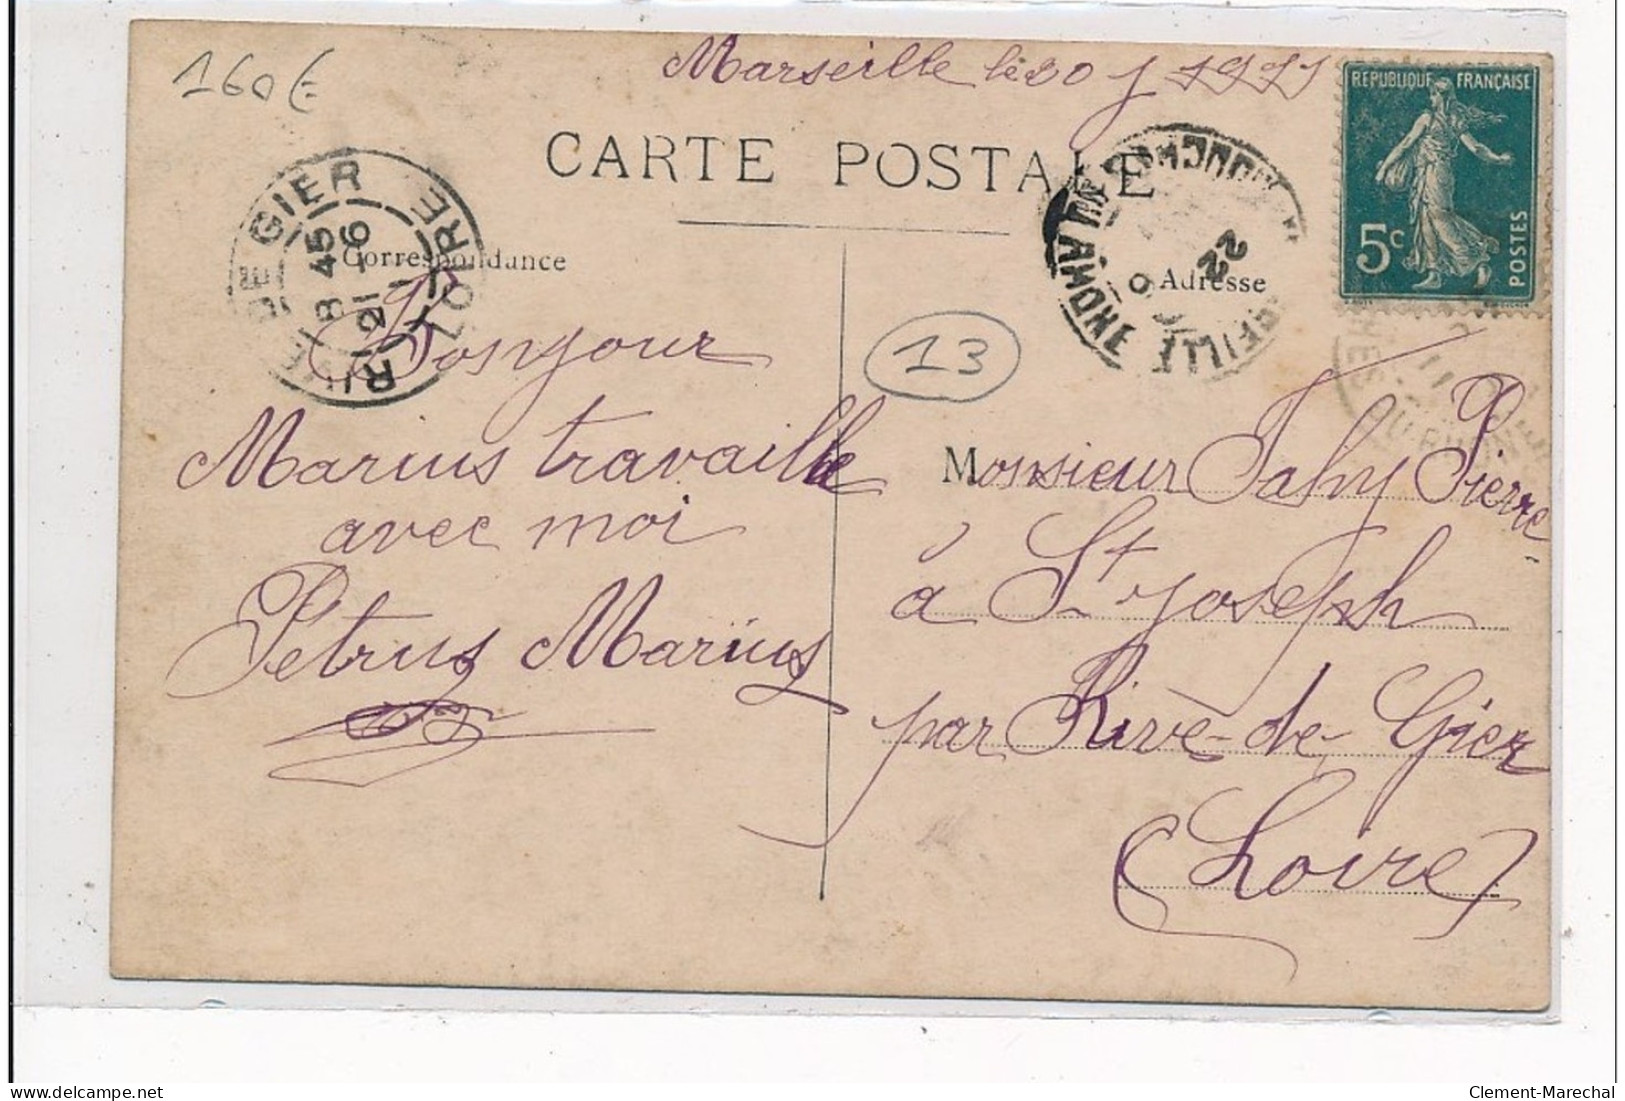 160€
Marseille le 20 j 1911
CARTE POSTALE
REPUBLIQUE FRANÇAISE
5c
POSTES
RIVE DE GIER
8 45
21 - 6
LOIRE
22
6
Correspondance
Adresse
13
Bonjour
Marius travaille
avec moi
Petrus Marius
Monsieur Fahy Pierre
à St Joseph
par Rive-de-Gier
(Loire)
11
Clement-Marechal